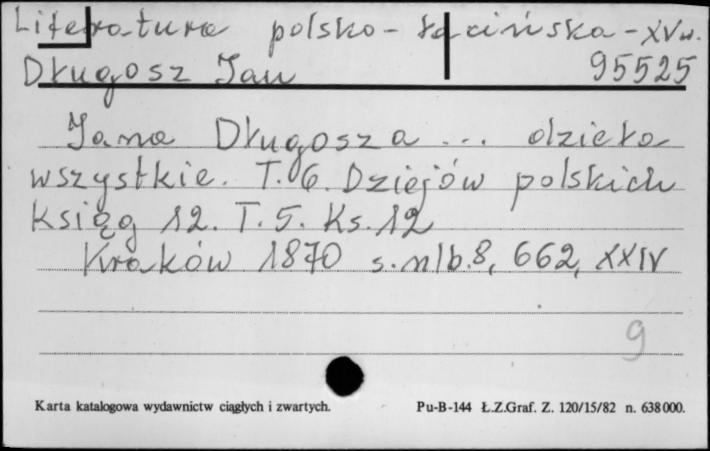 Literatura polsko-łacińska - XV w.
Długosz Jan 95525
Jana Długosza ... dzieła
wszystkie. T. 6. Dziejów polskich
ksiąg 12. T. 5. Ks. 12
Kraków 1870 s. nlb. 8, 662, XXIV
9
Karta katalogowa wydawnictw ciągłych i zwartych. Pu-B-144 Ł.Z.Graf. Z. 120/15/82 n. 638 000.